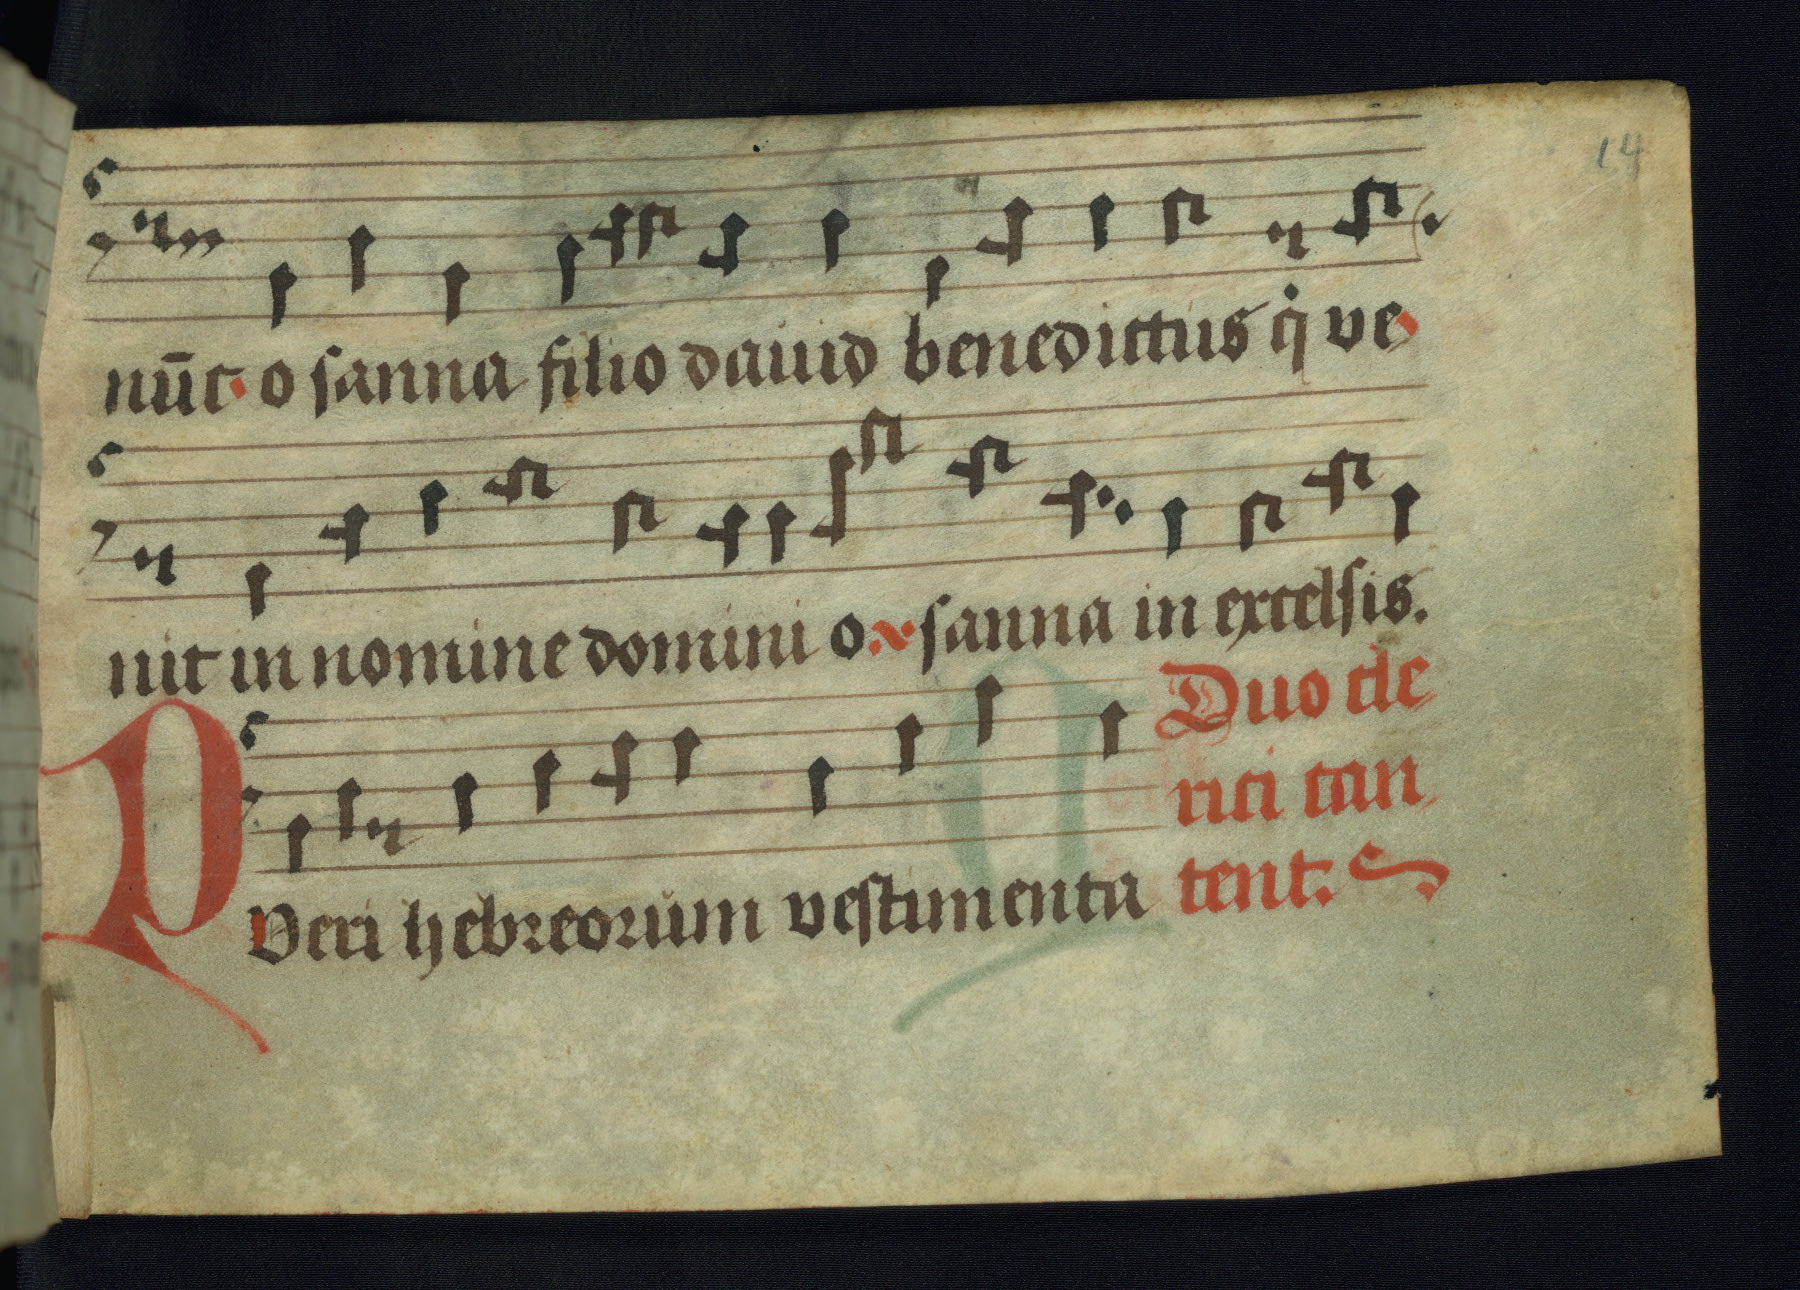 14
nūc o sanna filio dauid benedictus q̇ ve
nit in nomine domini o sanna in excelsis.
Pveri hebreorum vestimenta
Duo cle
rici can
tent: